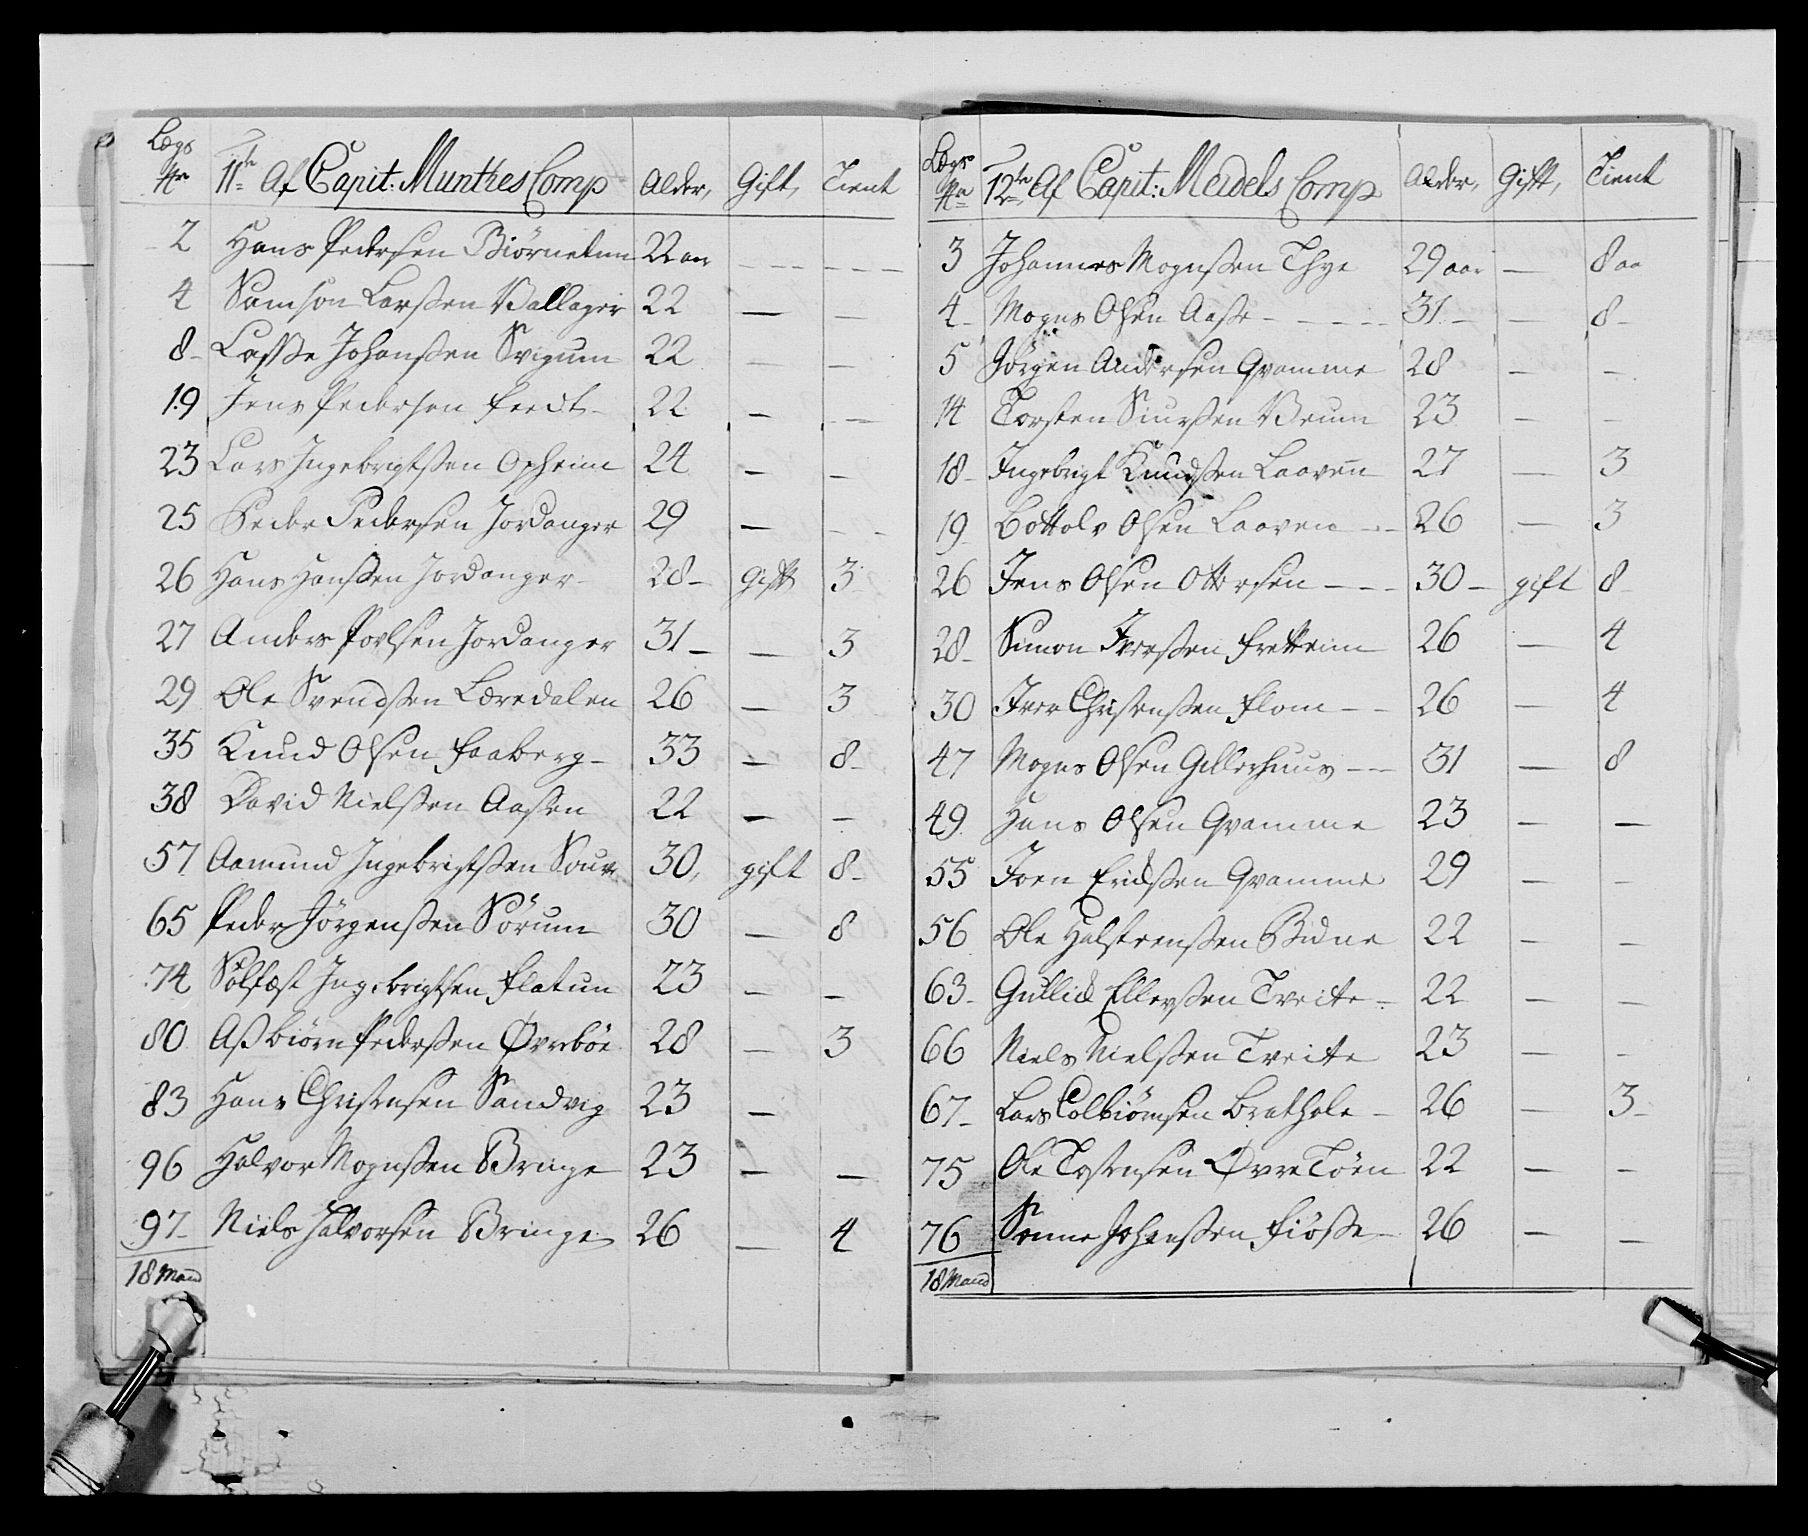 Lægs
No 11te Af Capit: Munthes Comp Alder, Gift, Tient
2 Hans Pedersen Biørnetun 22 aar - - - - - -
4 Samson Larssen Ballager 22 — —
8 Lasse Johanssen Svigum 22 — —
19 Jens Pedersen feedt 22 — —
23 Lars Ingebrigtssen Opheim 24 — —
25 Peder Pedersen Jordanger 29 — —
26 Hans Hanssen Jordanger 28 Gift 3
27 Anders Povlsen Jordanger 31 — 3
29 Ole Svendssen Læredalen 26 — 3
35 Knud Olsen faaberg 33 — 8
38 David Nielssen Aasen 22 — —
57 Aamund Ingebrigtssen 30, gift 8
65 Peder Jörgenssen Sörum 30 — 8
74 Sölfæst Ingebrigtsen flatun 23 — —
80 Assbiørn Pederssen Øvreböe 28 — 3
83 Hans Christensen Sandvig 23 —
96 Halvor Mognssen Bringe 23 — —
97 Niels Halvorsen Bringe 26 — 4
18 Mand
Lægs
No 12te Af Capit: Meidels Comp Alder, Gift, Tient
3 Johannes Mognssen Thye 29 aar — 8 aa
4 Mogns Olsen Aase 31 — 8
5 Jörgen Andersen Qvamme 28 — —
14 Torsten Siurssen Brum 23 — —
18 Ingebrigt Knudssen Laaven 27 — 3
19 Bottolv Olsen Laaven 26 — 3
26 Jens Olsen Ottersen 30 gift 8
28 Simon Iverssen frettheim 26 — 4
30 Iver Christenssen flom 26 — 4
47 Mogns Olsen Gillerhuus 31 — 8
49 Hans Olsen Qvamme 23 — —
55 Joen Erichssen Qvamme 29 — —
56 Ole Halstenssen Bidne 22 — —
63 Gullick Ellevssen Tveite 22 — —
66 Niels Nielssen Tveite 23 — —
67 Lars Colbiörnsen Brathole 26 — 3
75 Ole Tostensen Øvre Töen 22 — —
76 Sonne Johanssen fiösse 26 — —
18 Mand